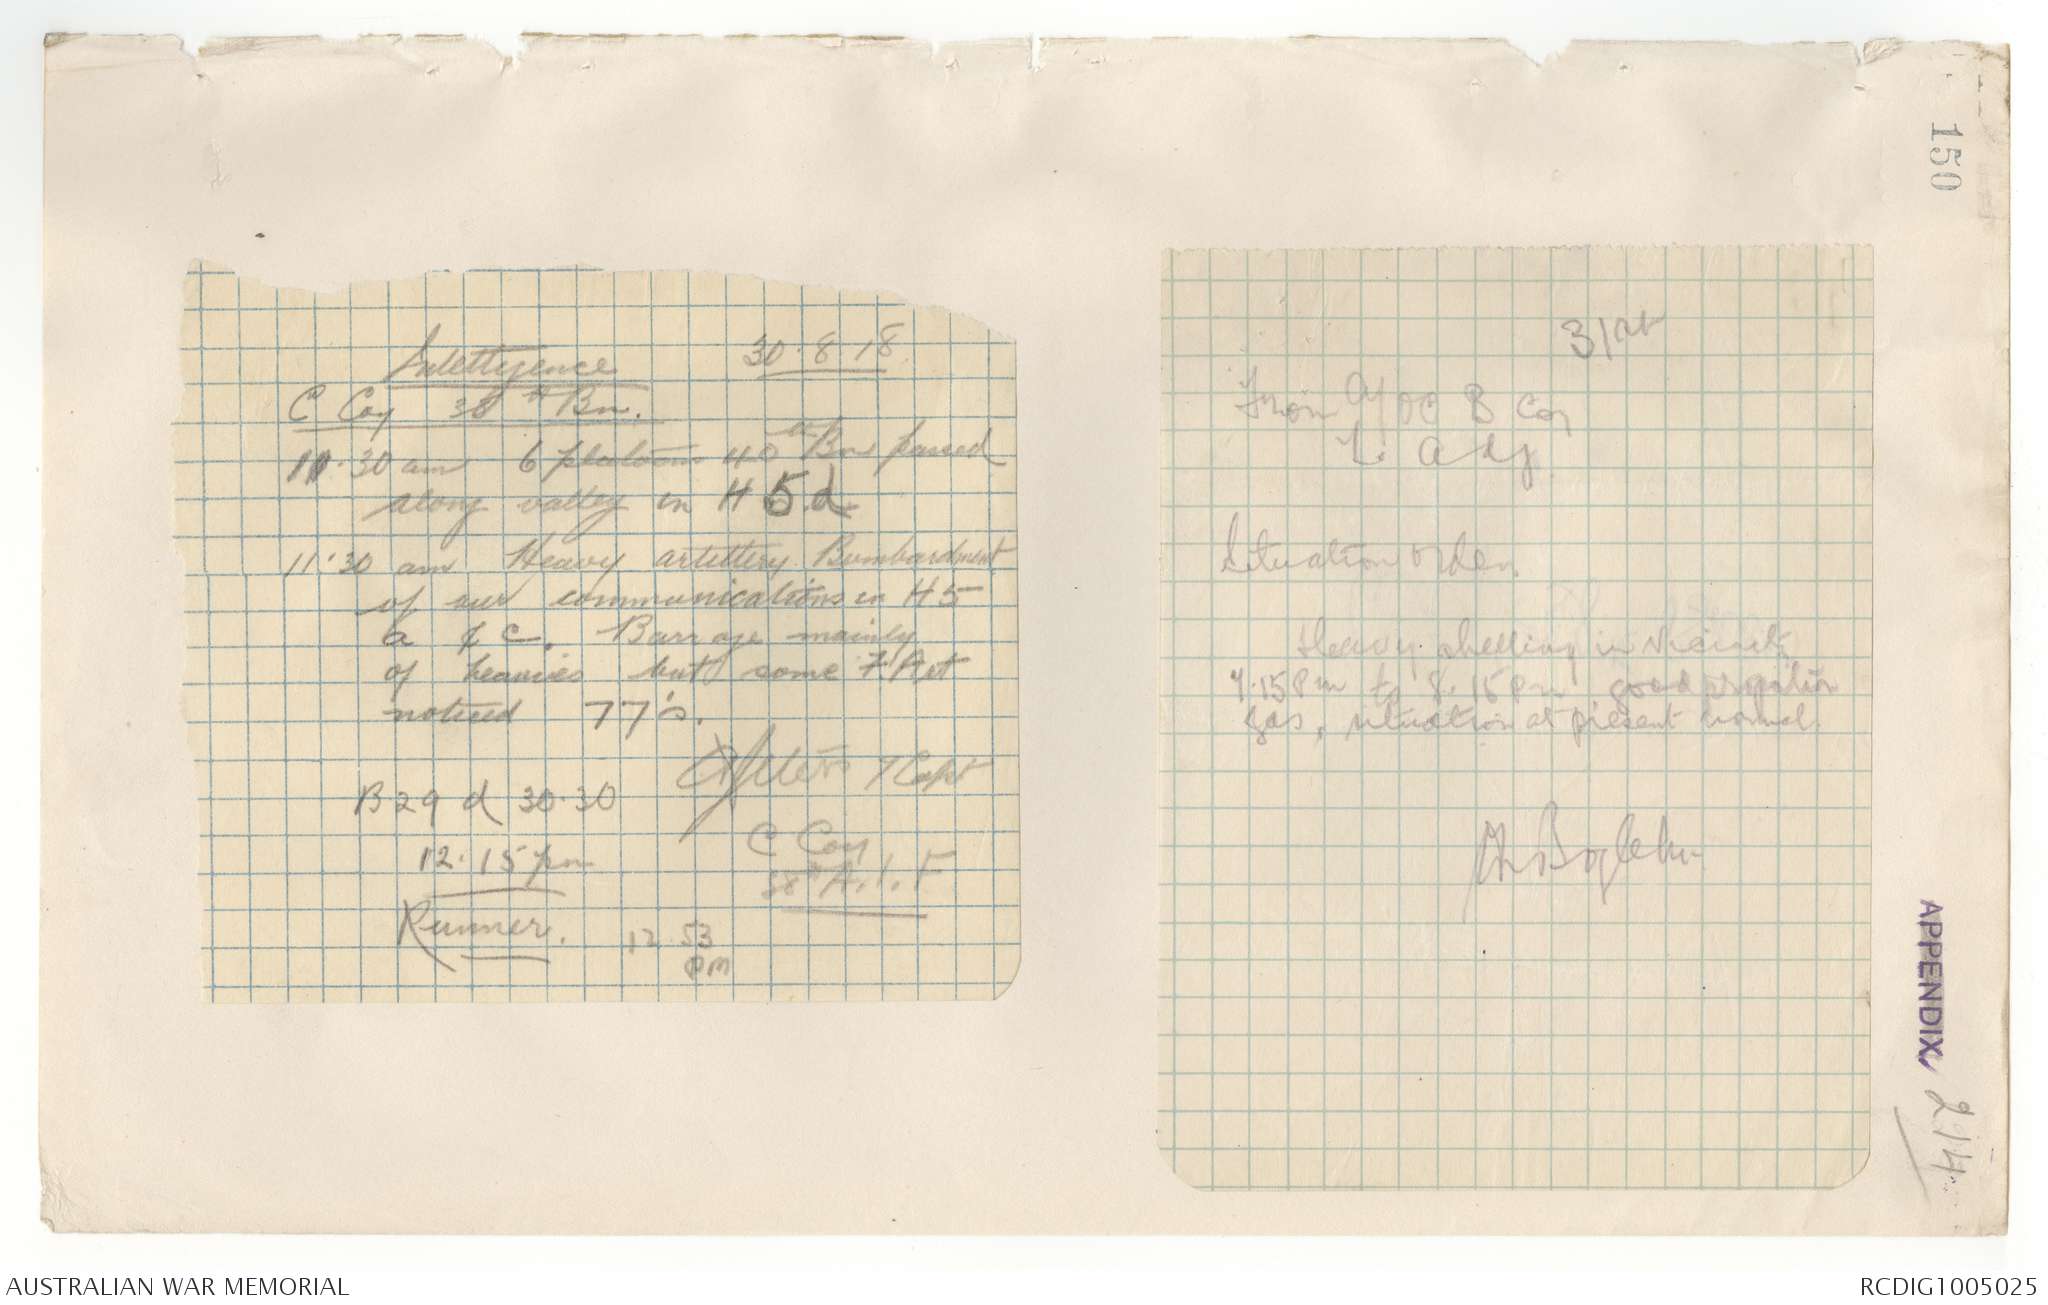 Intelligence 30.8.18
C Coy 38th Bn.
11.30 am 6 platoons 40th Bn passed
along valley in H 5.d.
11.30 am Heavy artillery Bombardment
of our communications in H5
a & c. Barrage mainly
of heavies but some F Art
noticed 77's.
Capt
B 29 d 30.30
C Coy
12.15 pm
38th A.I.F
Runner.
12.53
pm
150
31st
From OC B Coy
To Adj
Situation
Heavy shelling in vicinity
7.15 Pm to 8.15 Pm good proportion
gas, situation at present normal.
APPENDIX 214
AUSTRALIAN WAR MEMORIAL
RCDIG1005025